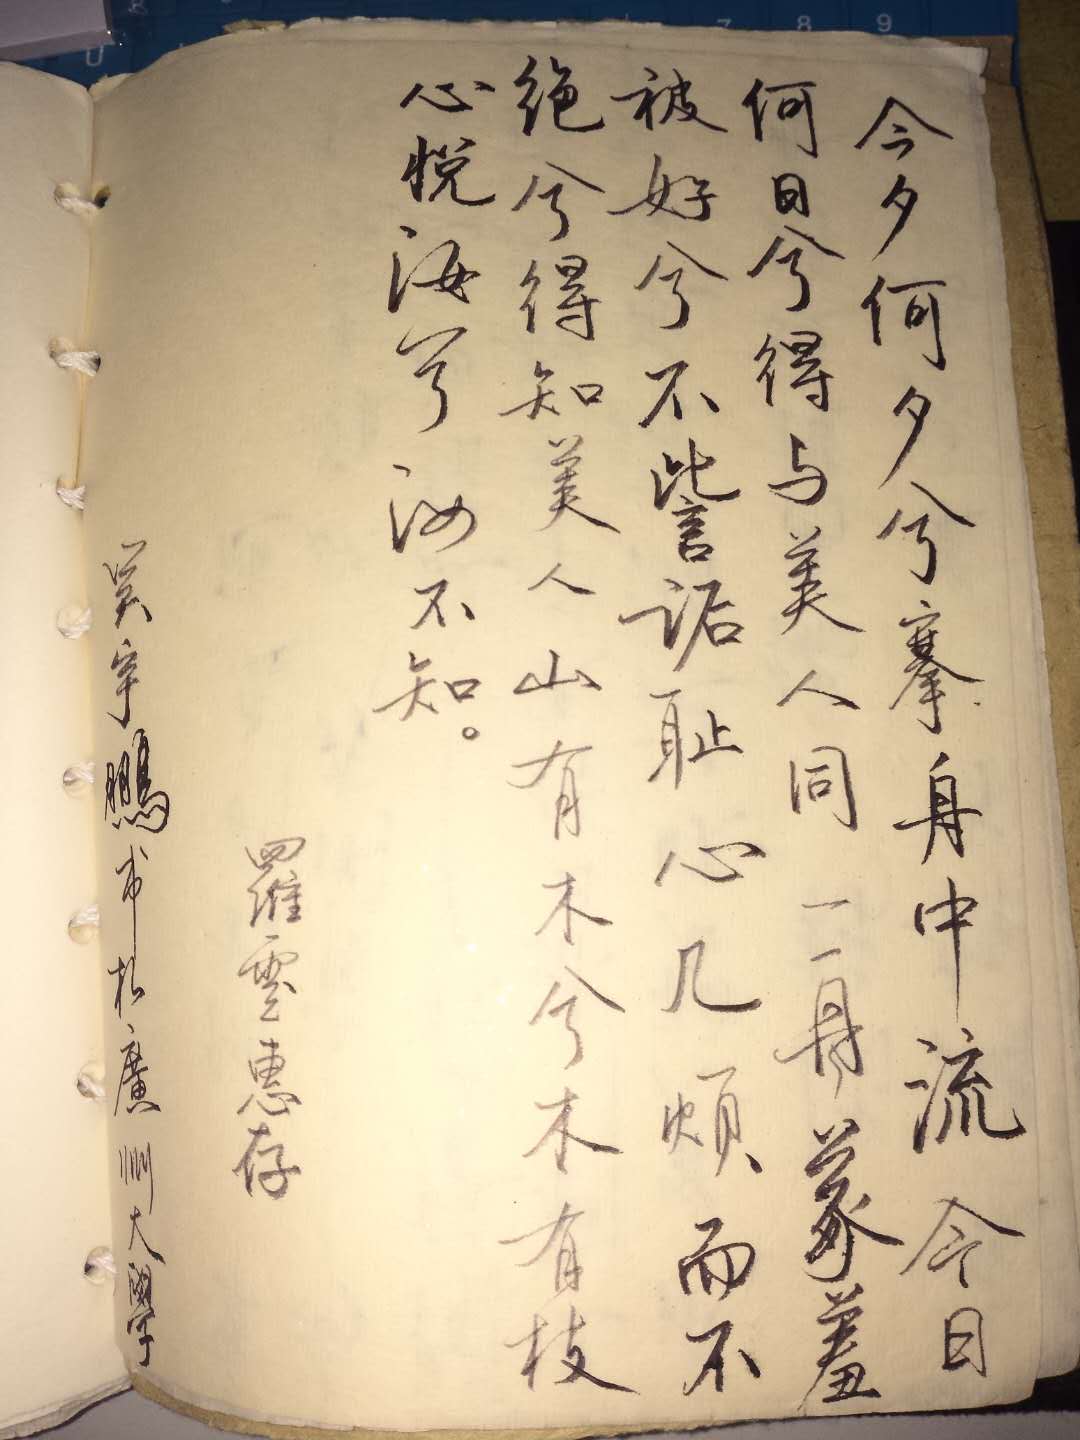 今夕何夕兮搴舟中流今日
何日兮得与美人同一舟蒙羞
被好兮不訾诟耻心几烦而不
绝兮得知美人山有木兮木有枝
心悦汝兮汝不知。
羅雲惠存
吴宇鵬书於廣州大學